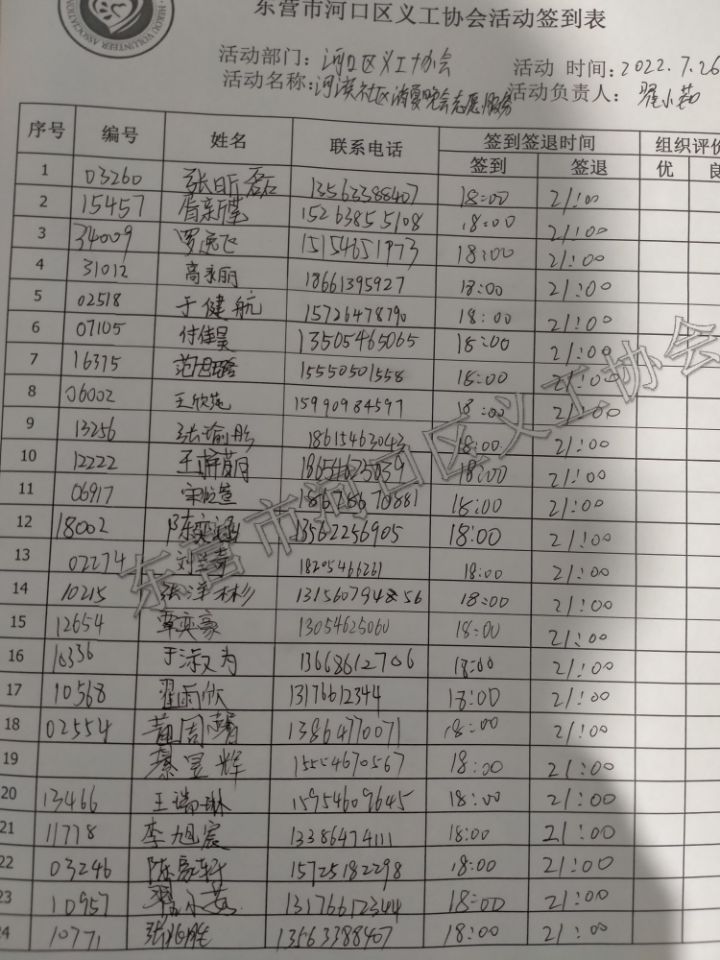 东营市河口区义工协会活动签到表
活动部门：河口区义工协会 活动 时间：2022.7.26
活动名称：河滨社区消夏晚会志愿服务 活动负责人：翟小茹
序号 编号 姓名 联系电话 签到签退时间 组织评价
签到 签退 优 良
1 03260 张昕磊 13563388407 18:00 21:00
2 15457 15263855108 18:00 21:00
3 34009 罗逸飞 15154651973 18:00 21:00
4 31012 高秉丽 18661395927 18:00 21:00
5 02518 于健航 15726478790 18:00 21:00
6 07105 付佳昊 13505465065 18:00 21:00
7 16375 15550501558 18:00 21:00
8 06002 王欣苑 15990984597 18:00 21:00
9 13256 张瑜彤 18615463043 18:00 21:00
10 12222 18654625039 18:00 21:00
11 06917 18:00 21:00
12 18002 陈奕涵 13562256905 18:00 21:00
13 02274 18205466261 18:00 21:00
14 10215 张洋彬 131560794856 18:00 21:00
15 12654 覃奕豪 13054625060 18:00 21:00
16 10336 于淑为 13668612706 18:00 21:00
17 10568 翟雨欣 13176612344 18:00 21:00
18 02554 13864770071 18:00 21:00
19 綦昱辉 15554670567 18:00 21:00
20 13466 王瑞琳 15954609645 18:00 21:00
21 11778 李旭宸 13386474111 18:00 21:00
22 03246 陈家轩 15725182298 18:00 21:00
23 10957 翟小茹 13176612344 18:00 21:00
24 10771 张兆胜 13563388407 18:00 21:00
东营市河口区义工协会